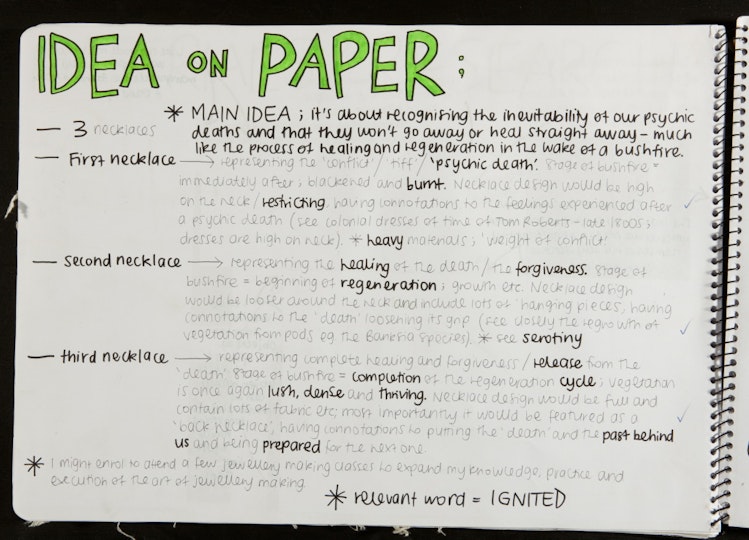 IDEA ON PAPER;
* MAIN IDEA ; it's about recognising the inevitability of our psychic
deaths and that they won't go away or heal straight away – much
like the process of healing and regeneration in the wake of a bushfire.
— 3 necklaces
— First necklace → representing the 'conflict' / 'tiff' / 'psychic death'. Stage of bushfire =
immediately after ; blackened and burnt. Necklace design would be high
on the neck / restricting, having connotations to the feelings experienced after
a psychic death (see colonial dresses of time of Tom Roberts – late 1800s ;
dresses are high on neck). * heavy materials ; 'weight of conflict'
— second necklace → representing the healing of the death / the forgiveness. Stage of
bushfire = beginning of regeneration ; growth etc. Necklace design
would be looser around the neck and include lots of 'hanging pieces', having
connotations to the 'death' loosening its grip (see closely the regrowth of
vegetation from pods eg. the Banksia species). * see serotiny
— third necklace → representing complete healing and forgiveness / release from the
'death'. Stage of bushfire = completion of the regeneration cycle ; vegetation
is once again lush, dense and thriving. Necklace design would be full and
contain lots of fabric etc; most importantly it would be featured as a
'back necklace', having connotations to putting the 'death' and the past behind
us and being prepared for the next one.
* I might enrol to attend a few jewellery making classes to expand my knowledge, practice and
execution of the art of jewellery making.
* relevant word = IGNITED